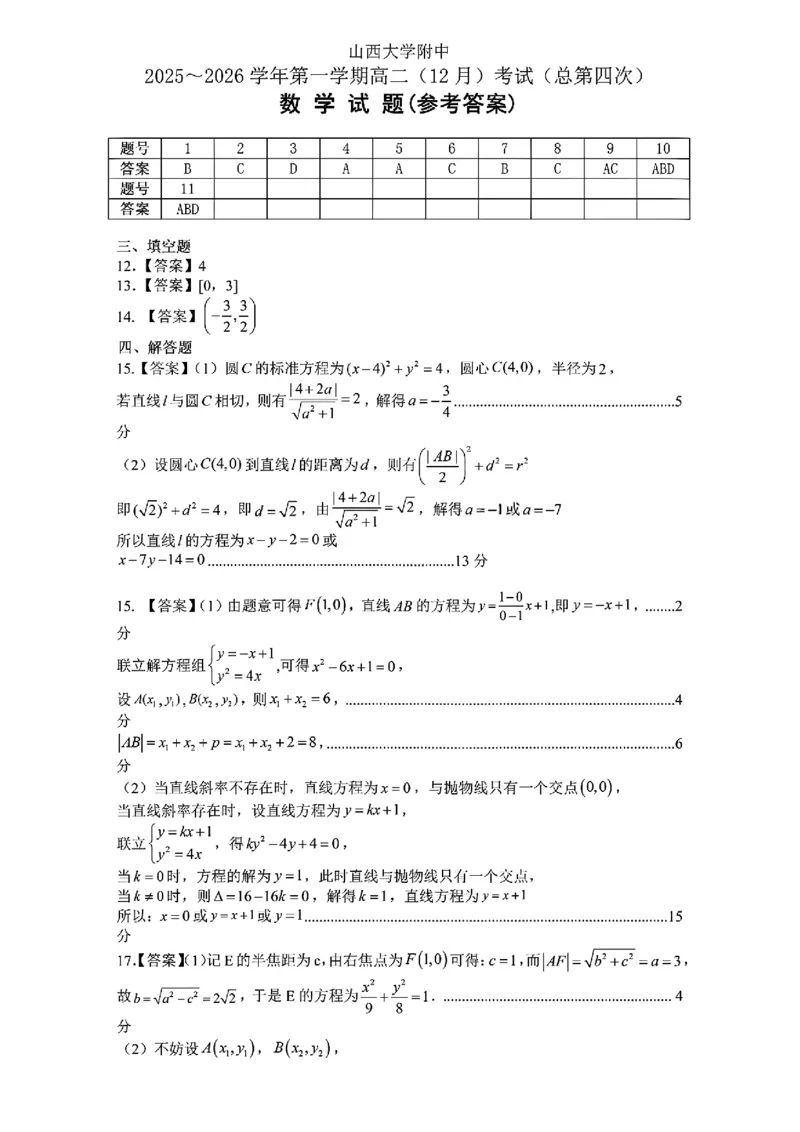 山西大学附中
2025～2026学年第一学期高二（12月）考试（总第四次）
数 学 试 题(参考答案)
题号 1 2 3 4 5 6 7 8 9 10
答案 B C D A A C B C AC ABD
题号 11
答案 ABD
三、填空题
12.【答案】4
13.【答案】[0，3]
14. 【答案】(-3/2,3/2)
四、解答题
15.【答案】（1）圆C的标准方程为(x-4)²+y²=4，圆心C(4,0)，半径为2，
若直线l与圆C相切，则有|4+2a|/√(a²+1)=2，解得a=-3/4............................................................5
分
（2）设圆心C(4,0)到直线l的距离为d，则有(|AB|/2)²+d²=r²
即(√2)²+d²=4，即d=√2，由|4+2a|/√(a²+1)=√2，解得a=-1或a=-7
所以直线l的方程为x-y-2=0或
x-7y-14=0...................................................................13分
15. 【答案】（1）由题意可得F(1,0)，直线AB的方程为y=(1-0)/(0-1)x+1,即y=-x+1，........2
分
联立解方程组{y=-x+1 y²=4x,可得x²-6x+1=0，
设A(x₁,y₁),B(x₂,y₂)，则x₁+x₂=6，..........................................................................................4
分
|AB|=x₁+x₂+p=x₁+x₂+2=8，..............................................................................................6
分
（2）当直线斜率不存在时，直线方程为x=0，与抛物线只有一个交点(0,0)，
当直线斜率存在时，设直线方程为y=kx+1，
联立{y=kx+1 y²=4x，得ky²-4y+4=0，
当k=0时，方程的解为y=1，此时直线与抛物线只有一个交点，
当k≠0时，则Δ=16-16k=0，解得k=1，直线方程为y=x+1
所以：x=0或y=x+1或y=1...................................................................................................15
分
17.【答案】（1）记E的半焦距为c,由右焦点为F(1,0)可得：c=1,而|AF|=√(b²+c²)=a=3，
故b=√(a²-c²)=2√2，于是E的方程为x²/9+y²/8=1．............................................................... 4
分
（2）不妨设A(x₁,y₁)，B(x₂,y₂)，